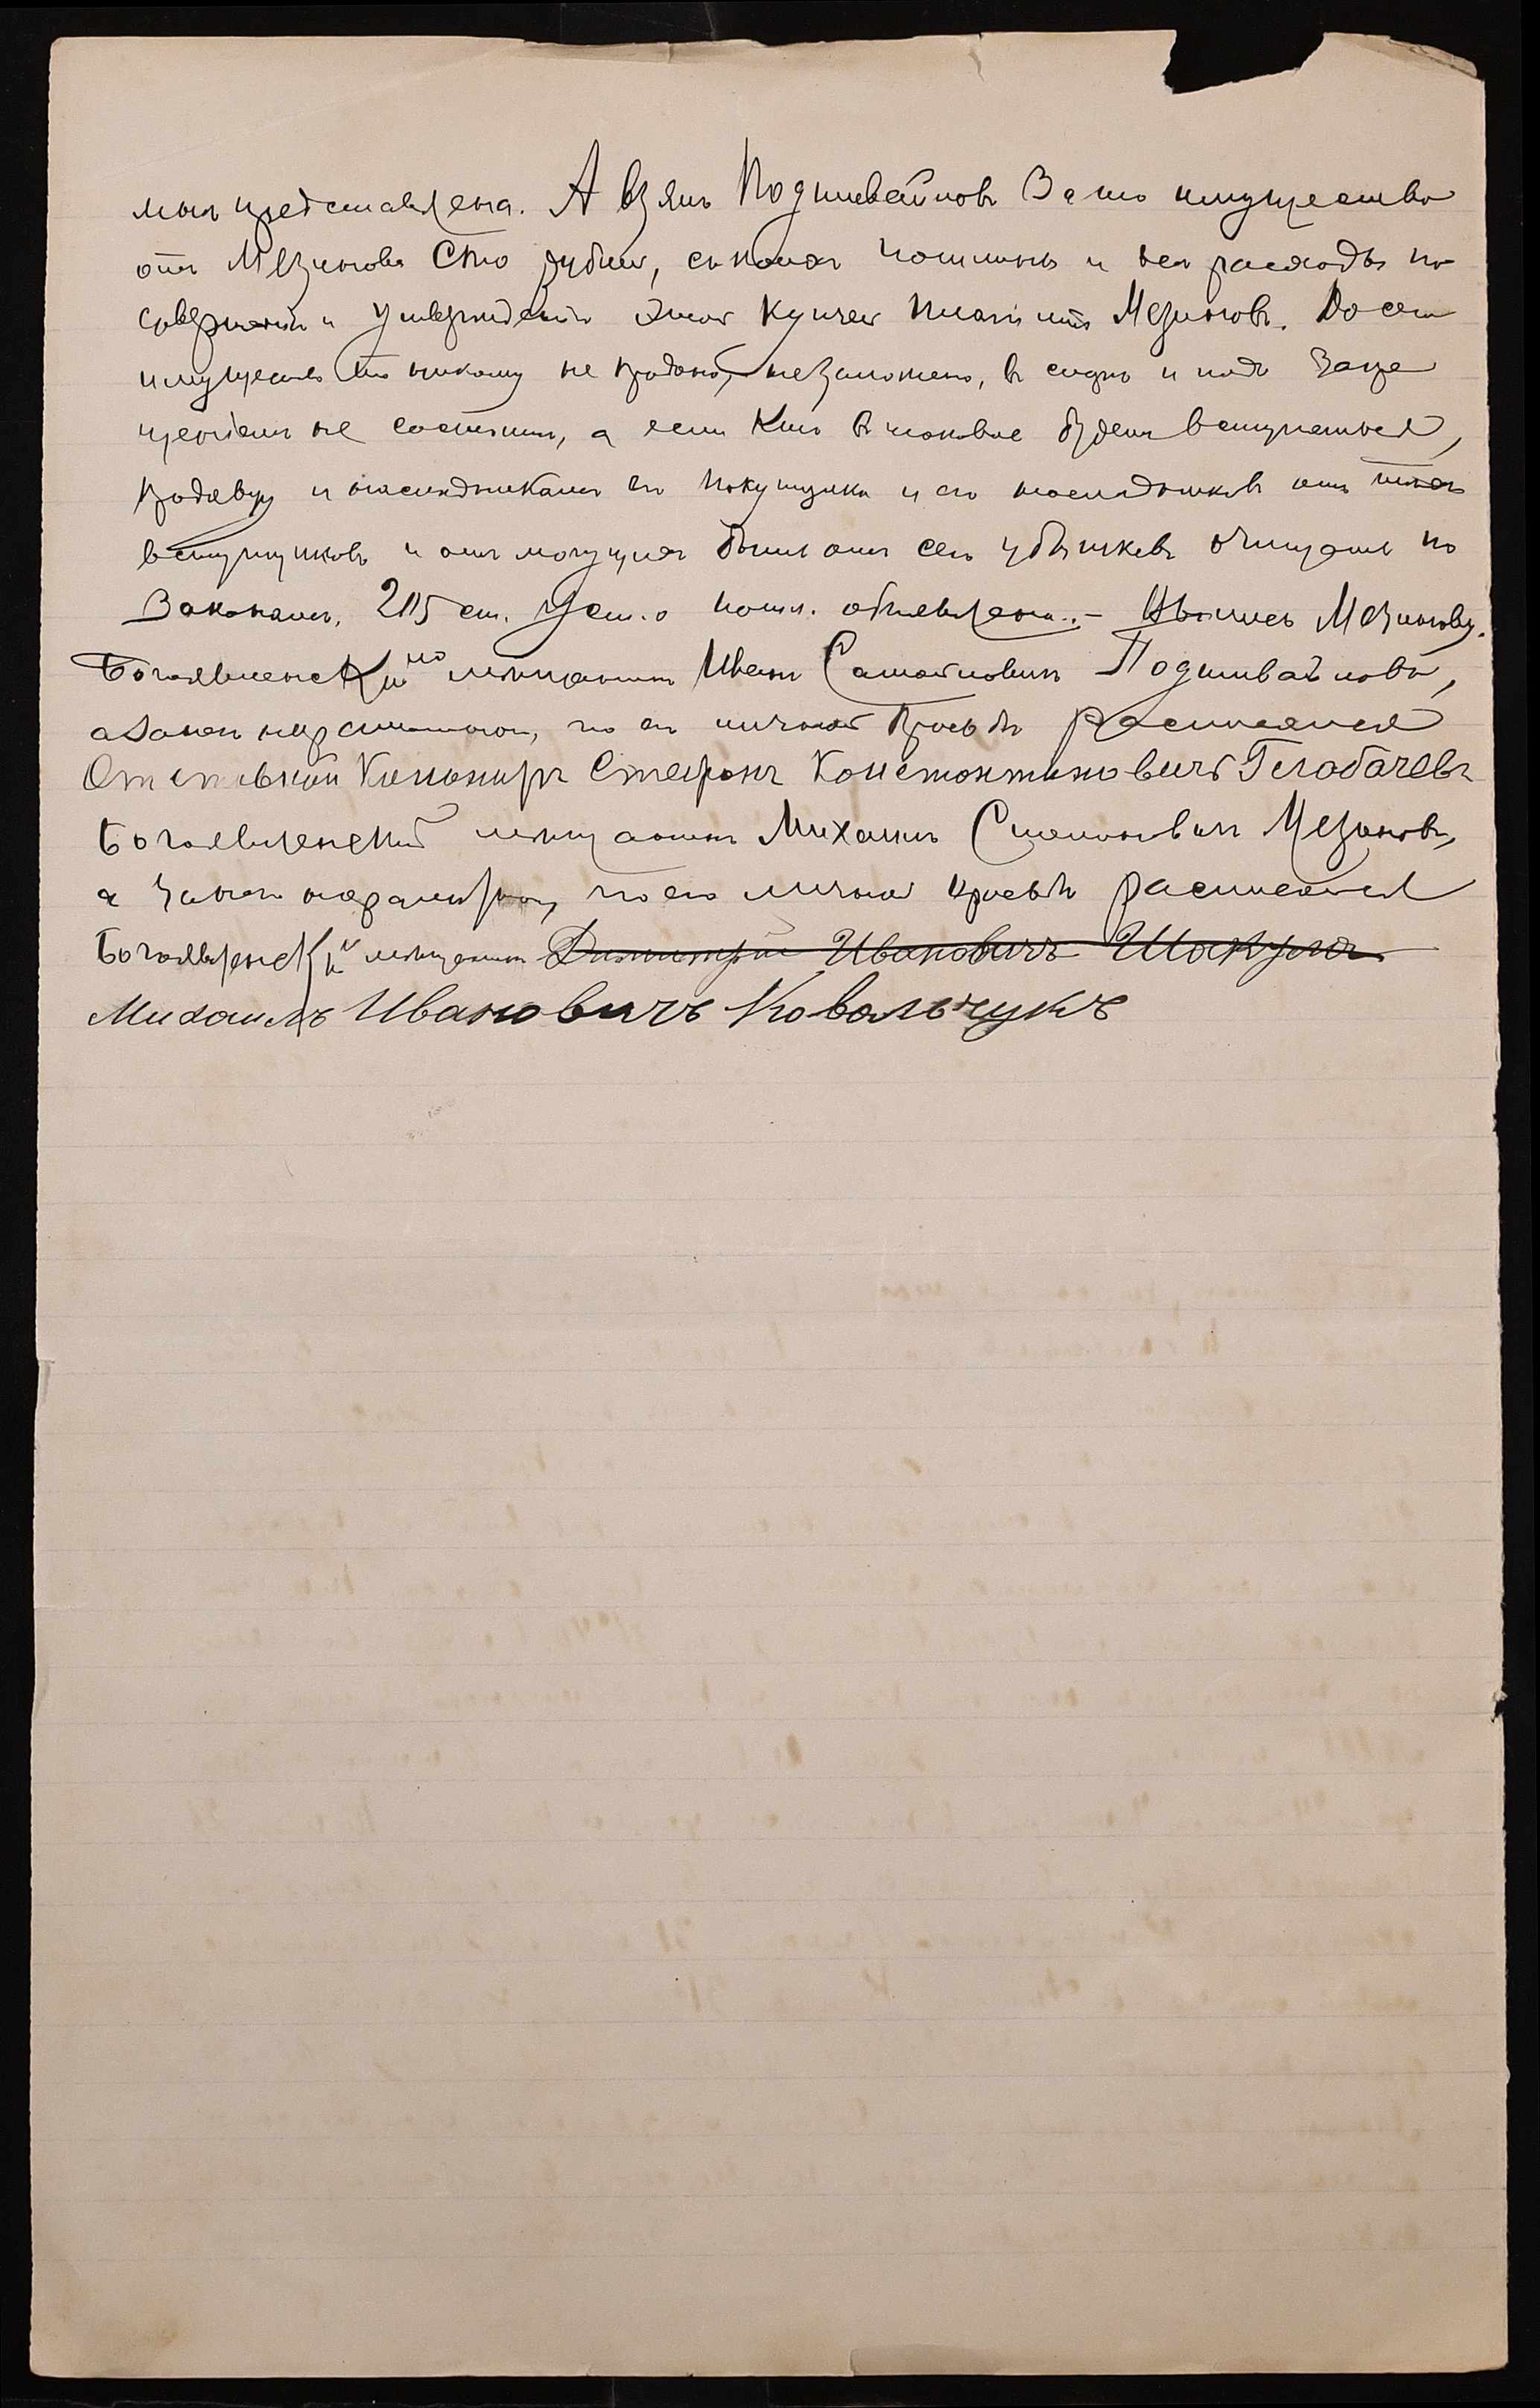 мыя представлена. А взялъ Подшивайловъ за то имущество
отъ Мезинова сто рублей, пошлины и все расходы по
совершенію и утвержденію этой купчей платитъ Мезиновъ. До сего
имущество то никому не продано, не заложено, въ спорѣ и подъ запре
щеніемъ не состоитъ, а если кто въ таковое будетъ вступаться,
продавцу и наслѣдникамъ его покупщика и его наслѣдниковъ отъ тѣхъ
вступщиковъ и отъ могущихъ быть отъ сего убытковъ очищать по
Законамъ. 215 ст. Уст. о пошл. объявлена. – Мезинову.
Богоявленскій мѣщанинъ Иванъ Подшивайловъ,
а за него неграмотнаго, по его личной просьбѣ расписался
Отставной Канониръ Стефанъ Константиновичъ Гелобачевъ
Богоявленскій мѣщанинъ Михаилъ Мезиновъ,
а за него неграмотнаго, по его личной просьбѣ расписался
Богоявленскій мѣщанинъ Димитрій Ивановичъ
Михаилъ Ивановичъ Ковальчукъ